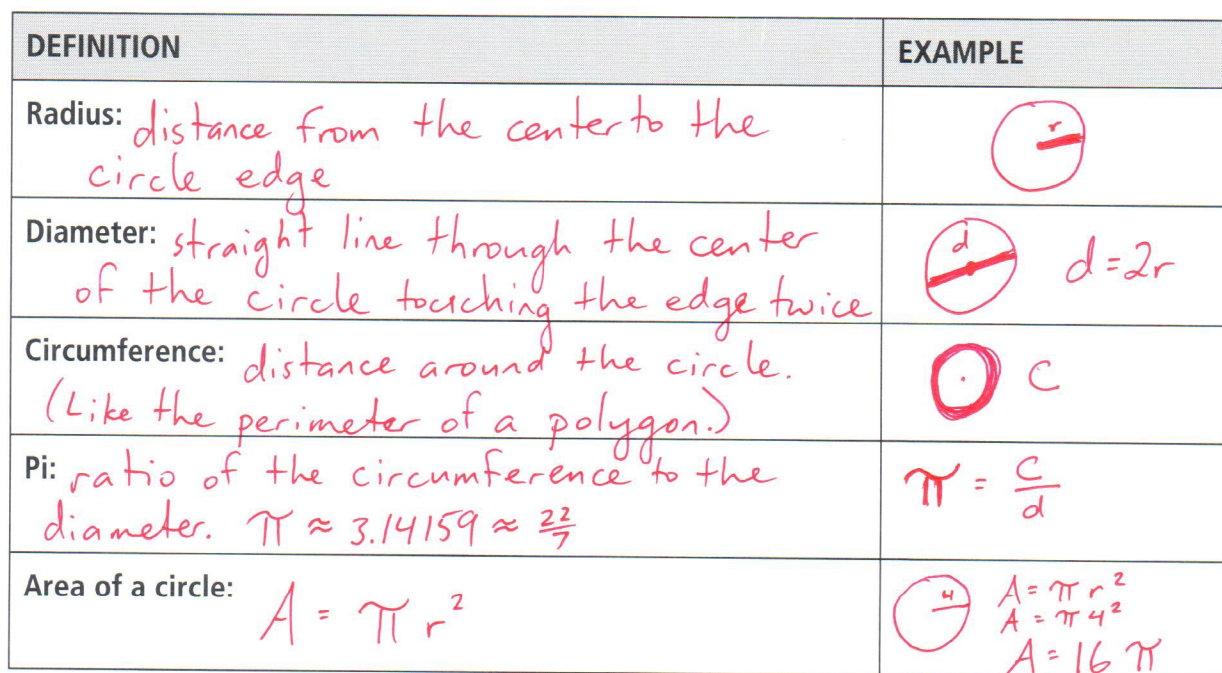 DEFINITION EXAMPLE
Radius: distance from the center to the
circle edge
r
Diameter: straight line through the center
of the circle touching the edge twice
d
d = 2r
Circumference: distance around the circle.
(Like the perimeter of a polygon.)
C
Pi: ratio of the circumference to the
diameter. π ≈ 3.14159 ≈ 22/7
π = C/d
Area of a circle: A = πr²
4
A = πr²
A = π4²
A = 16π